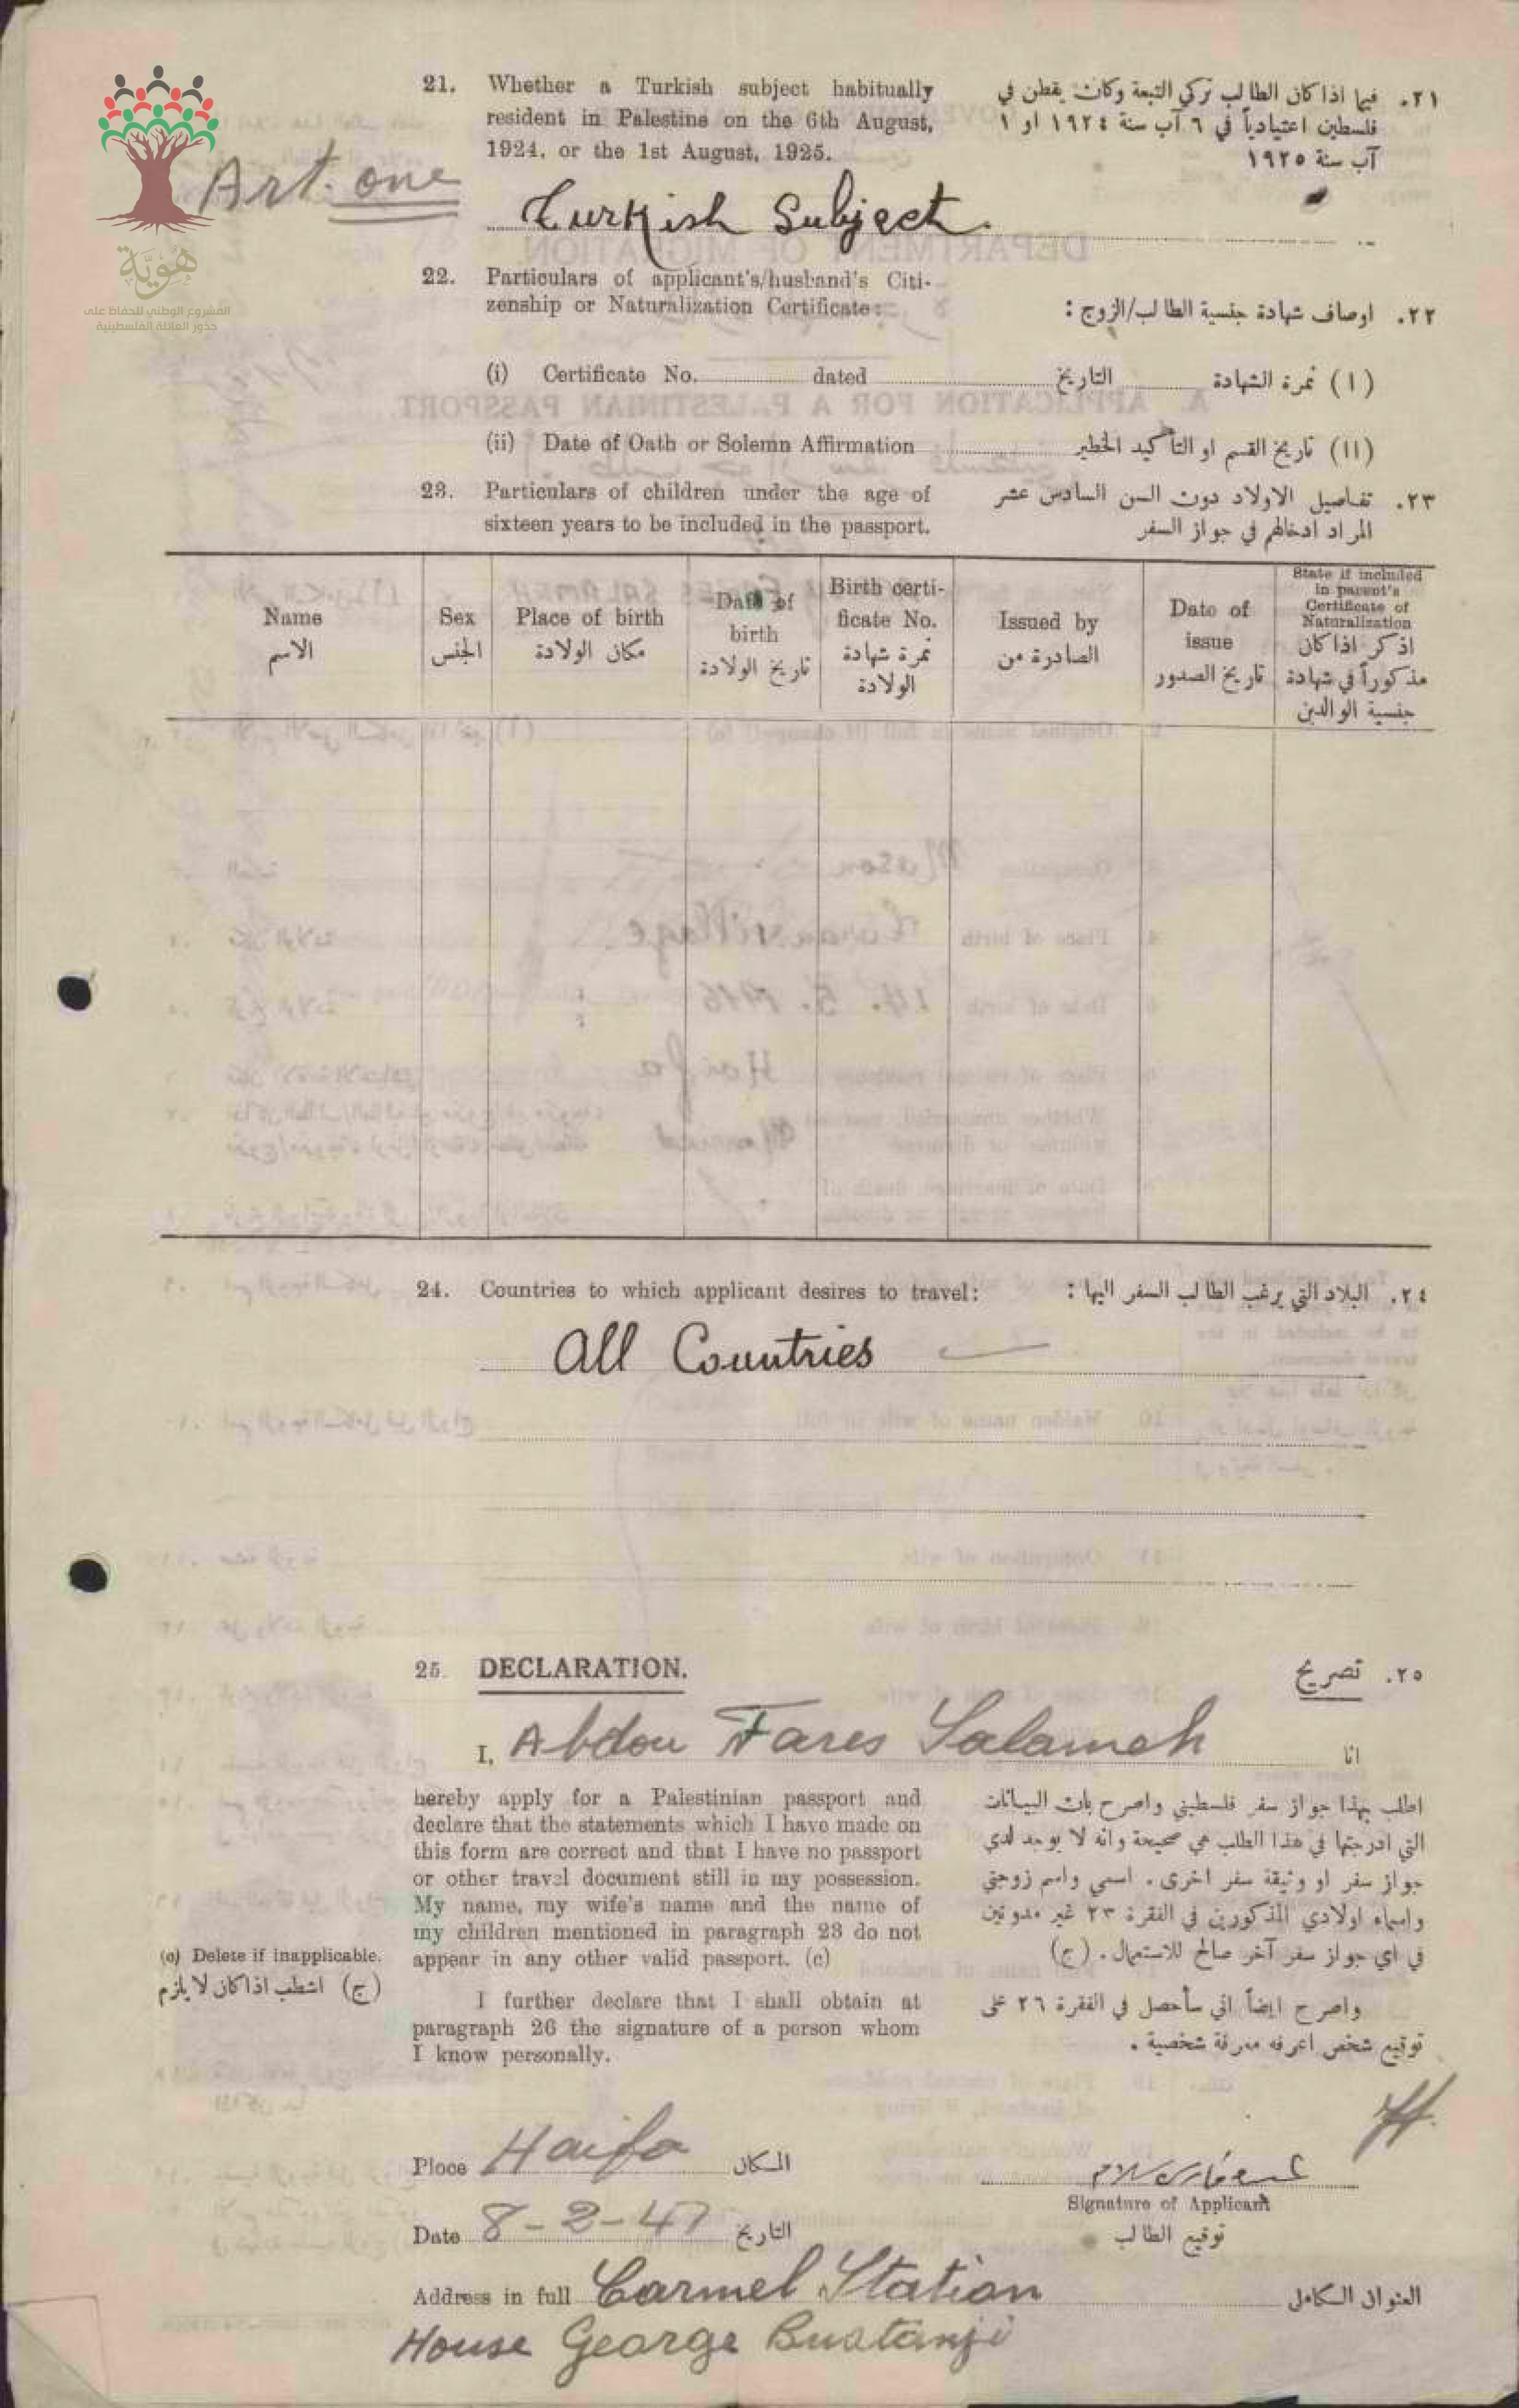 21. Whether a Turkish subject habitually
resident in Palestine on the 6th August,
1924, or the 1st August, 1925.
٢١. فيما اذا كان الطالب تركي التبعة وكان يقطن في
فلسطين اعتيادياً في ٦ آب سنة ١٩٢٤ او ١
آب سنة ١٩٢٥
Art. one
Turkish Subject.
هوية
المشروع الوطني للحفاظ على
جذور العائلة الفلسطينية
22. Particulars of applicant's/husband's Citi-
zenship or Naturalization Certificate:
٢٢. اوصاف شهادة جنسية الطالب/الزوج :
(i) Certificate No. dated التاريخ (١) نمرة الشهادة
(ii) Date of Oath or Solemn Affirmation (١١) تاريخ القسم او التأكيد الخطير
23. Particulars of children under the age of
sixteen years to be included in the passport.
٢٣. تفاصيل الاولاد دون السن السادس عشر
المراد ادخالهم في جواز السفر
Name
الاسم
Sex
الجنس
Place of birth
مكان الولادة
Date of
birth
تاريخ الولادة
Birth certi-
ficate No.
نمرة شهادة
الولادة
Issued by
الصادرة من
Date of
issue
تاريخ الصدور
State if included
in parent's
Certificate of
Naturalization
اذكر اذا كان
مذكوراً في شهادة
جنسية الوالدين
24. Countries to which applicant desires to travel: ٢٤. البلاد التي يرغب الطالب السفر اليها :
All Countries
25 DECLARATION. ٢٥. تصريح
I, Abdou Fares Salameh انا
hereby apply for a Palestinian passport and
declare that the statements which I have made on
this form are correct and that I have no passport
or other travel document still in my possession.
My name, my wife's name and the name of
my children mentioned in paragraph 23 do not
appear in any other valid passport. (c)
I further declare that I shall obtain at
paragraph 26 the signature of a person whom
I know personally.
اطلب بهذا جواز سفر فلسطيني واصرح بان البيانات
التي ادرجتها في هذا الطلب هي صحيحة وانه لا يوجد لدي
جواز سفر او وثيقة سفر اخرى . اسمي واسم زوجتي
واسماء اولادي المذكورين في الفقرة ٢٣ غير مدونين
في اي جواز سفر آخر صالح للاستعمال . (ج)
واصرح ايضاً اني سأحصل في الفقرة ٢٦ على
توقيع شخص اعرفه معرفة شخصية .
(c) Delete if inapplicable.
(ج) اشطب اذا كان لا يلزم
Place Haifa المكان
عبده فارس سلامه
Signature of Applicant
توقيع الطالب
Date 8-2-47 التاريخ
Address in full Carmel Station العنوان الكامل
House George Bustanji